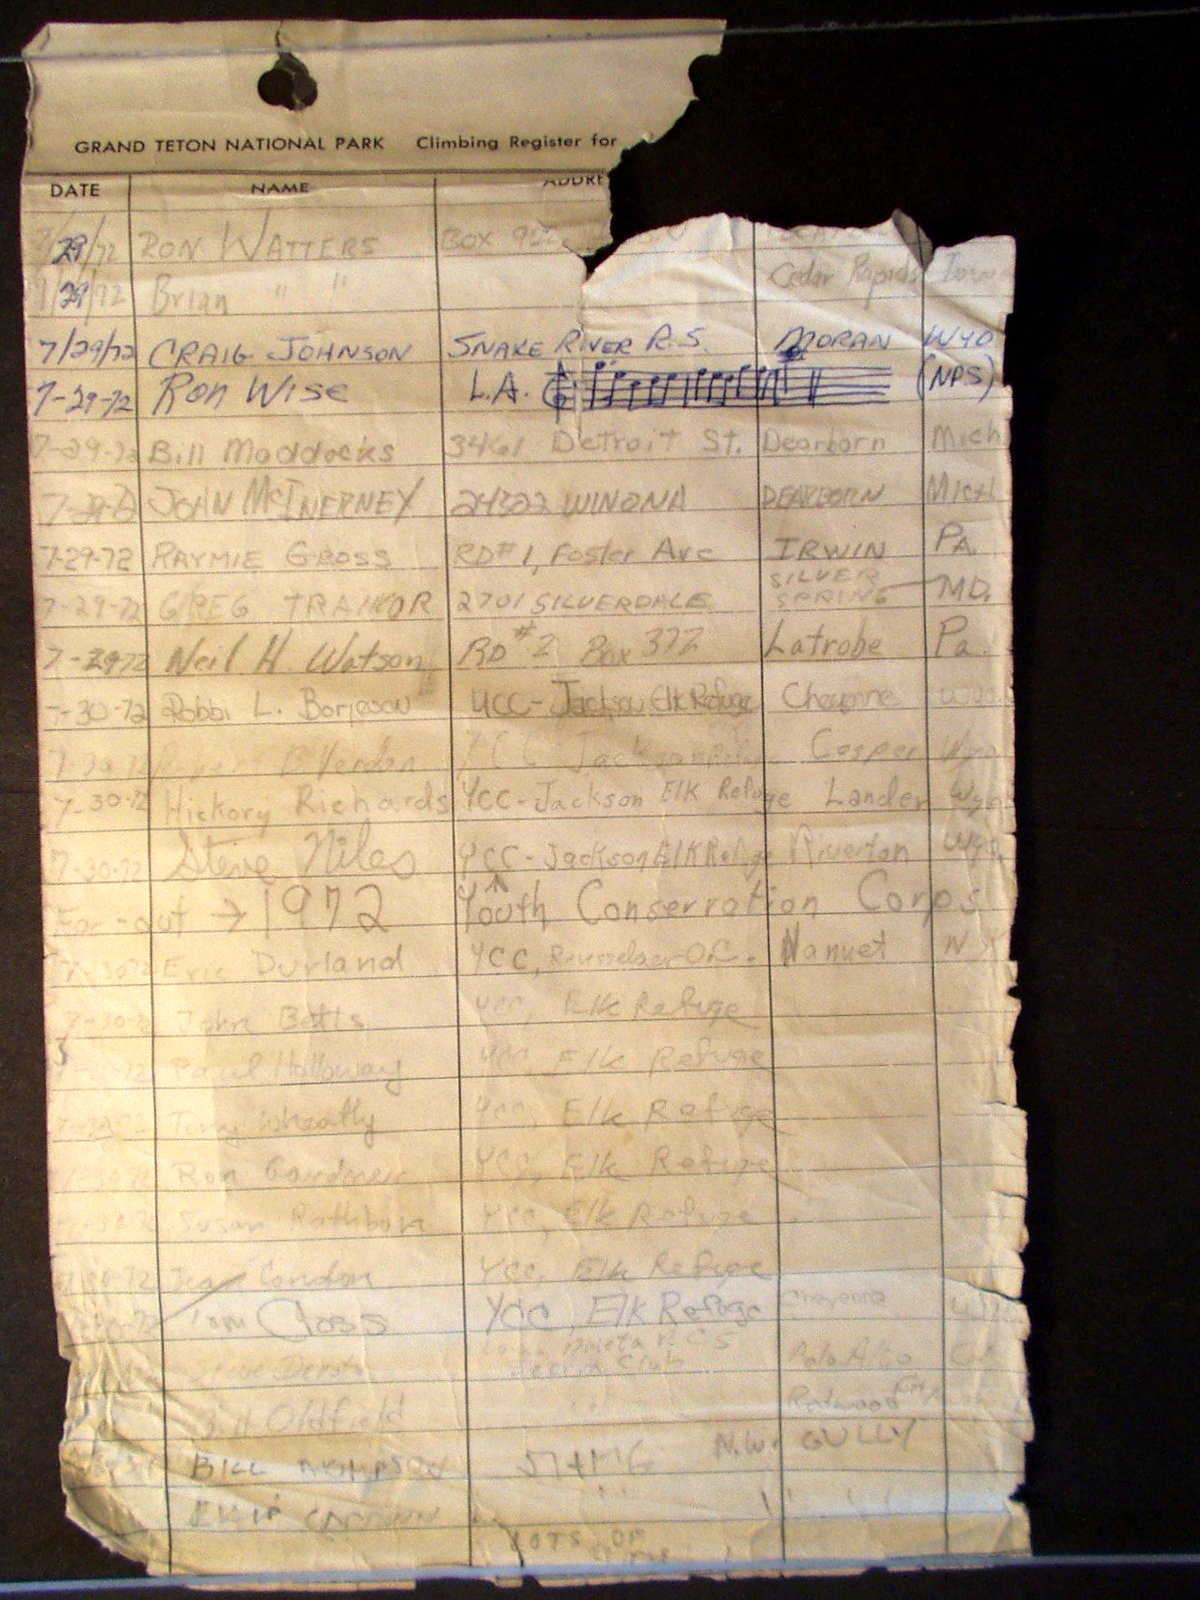 GRAND TETON NATIONAL PARK Climbing Register for
DATE NAME ADDRE
29/72 RON WATTERS BOX
29/72 Brian " " Cedar Rapids Iowa
7/29/72 CRAIG JOHNSON SNAKE RIVER R.S. MORAN WYO
7-29-72 Ron Wise L.A. (NPS)
7-29-72 Bill Maddocks 3461 Detroit St. Dearborn Mich
7-29-72 JOHN McINERNEY 24322 WINONA DEARBORN Mich
7-29-72 RAYMIE GROSS RD#1, Foster Ave IRWIN PA.
7-29-72 GREG TRAINOR 2701 SILVERDALE SILVER SPRING MD.
7-2972 Neil H. Watson RD #2 Box 372 Latrobe Pa.
7-30-72 Robbi L. Borjeson YCC-Jackson Elk Refuge Cheyenne
Jackson Casper Wyo
7-30-72 Hickory Richards YCC-Jackson Elk Refuge Lander Wyo
7-30-72 Steve Niles YCC-Jackson Elk Refuge Riverton Wyo
Far-out → 1972 Youth Conservation Corps
7-3072 Eric Durland YCC, Nanuet N.Y.
7-30-72 John Betts YCC, Elk Refuge
Paul Holloway YCC, Elk Refuge
Tony Wheatly YCC, Elk Refuge
Ron Gardner YCC, Elk Refuge
Susan Rathbun YCC, Elk Refuge
Condon YCC, Elk Refuge
Tom Class YCC, Elk Refuge Cheyenne
Loma Prieta Club Palo Alto Cal
Bill Oldfield Redwood
BILL N.W. GULLY
SKIP
LOTS OF